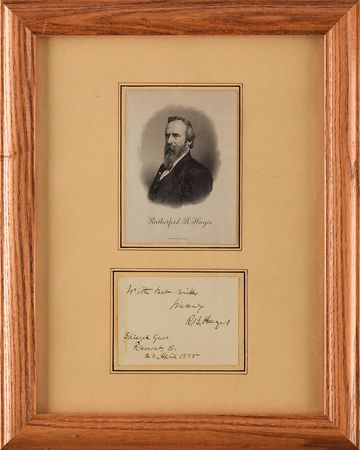 Rutherford B. Hayes
With best wishes
Sincerely
R.B. Hayes
Spiegel Grove
Fremont, O.
23 April 1885